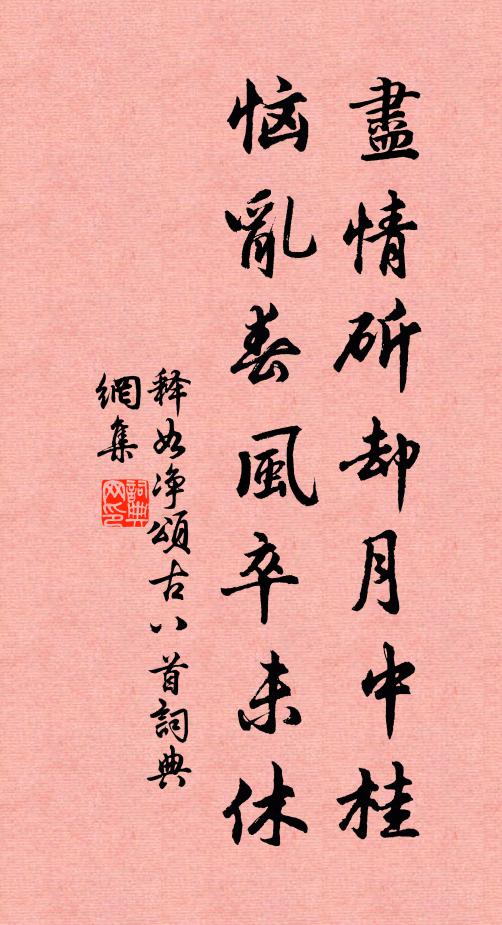 盡情斫却月中桂
惱亂春風卒未休
释如净頌古八首詞典
網集
詞典網印